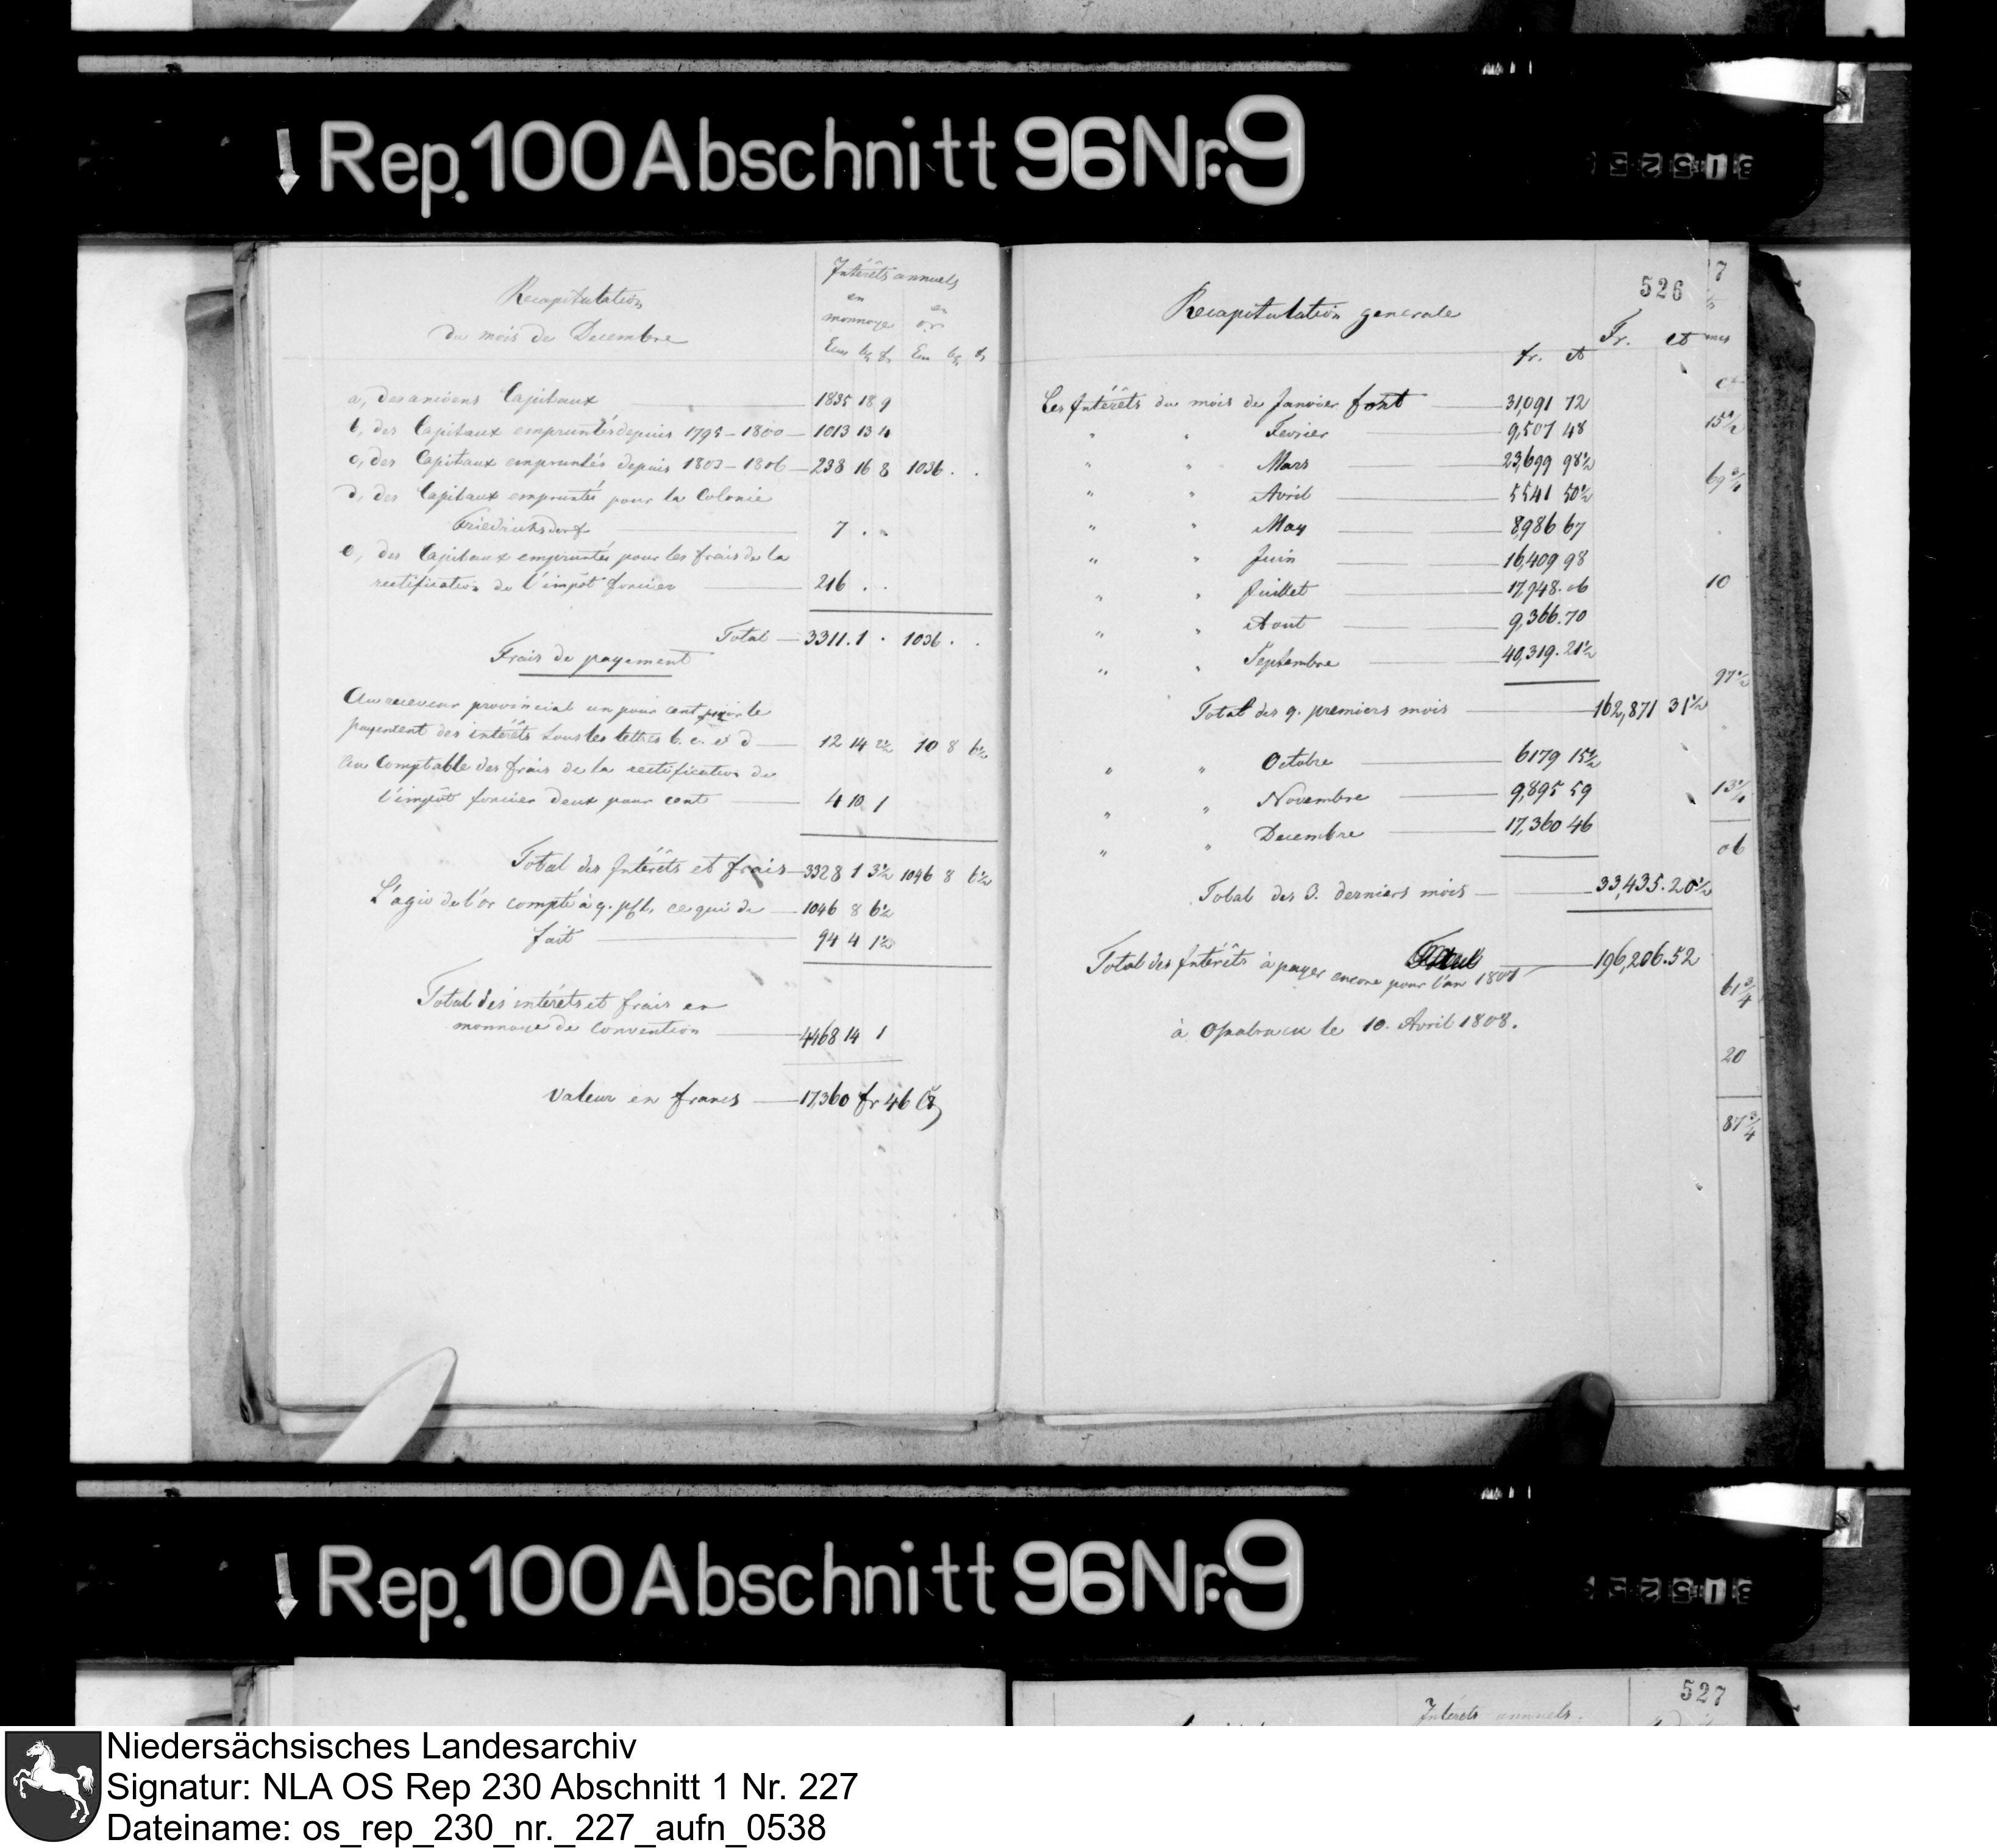 Rep. 100 Abschnitt 96 Nr. 9
Recapitulation
du mois de Decembre
Intérêts annuels
en monnoye
en or
a, des anciens Capitaux 1835 18 9
b, des Capitaux empruntés depuis 1795 – 1800 – 1013 13 4
c, des Capitaux empruntés depuis 1803 – 1806 – 238 16 8 1036 . .
d, des Capitaux empruntés pour la Colonie
Friedrichsdorf 7 . .
e, des Capitaux empruntés pour les frais de la
rectification de l'impôt foncier 216 . .
Total – 3311 . 1 . 1036 . .
Frais de payement
Au receveur provincial un pour cent pour le
payement des intérêts sous les lettres b. c. et d – 12 14 2½ 10 8 6½
Au Comptable des frais de la rectification de
l'impôt foncier deux pour cent 4 10 1
Total des Intérêts et frais – 3328 1 3½ 1046 8 6½
L'agio de l'or compté à 9. pCt, ce qui de – 1046 8 6½
fait 94 4 1½
Total des intérets et frais en
monnoye de convention 4468 14 1
Valeur en francs 17,360 fr 46 Ct
526
Recapitulation generale
fr. ct Fr. ct
Les Intérêts du mois de Janvier font 31,091 72
" " Fevrier 9,507 48
" " Mars 23,699 98½
" " Avril 5541 50½
" " May 8,986 67
" " Juin 16,409 98
" " Juillet 17,948. 06
" " Aout 9,366. 70
" " Septembre 40,319. 21½
Total des 9. premiers mois 162,871 31½
" " Octobre 6179 15½
" " Novembre 9,895 59
" " Decembre 17,360 46
Total des 3. derniers mois – 33,435. 20½
Total des Intérêts à payer encore pour l'an 1807 196,206. 52
à Osnabruck le 10. Avril 1808.
7
15½
69¾
10
97½
13¼
06
61¾
20
87¾
Rep. 100 Abschnitt 96 Nr. 9
527
Intérets annuels.
Niedersächsisches Landesarchiv
Signatur: NLA OS Rep 230 Abschnitt 1 Nr. 227
Dateiname: os_rep_230_nr._227_aufn_0538